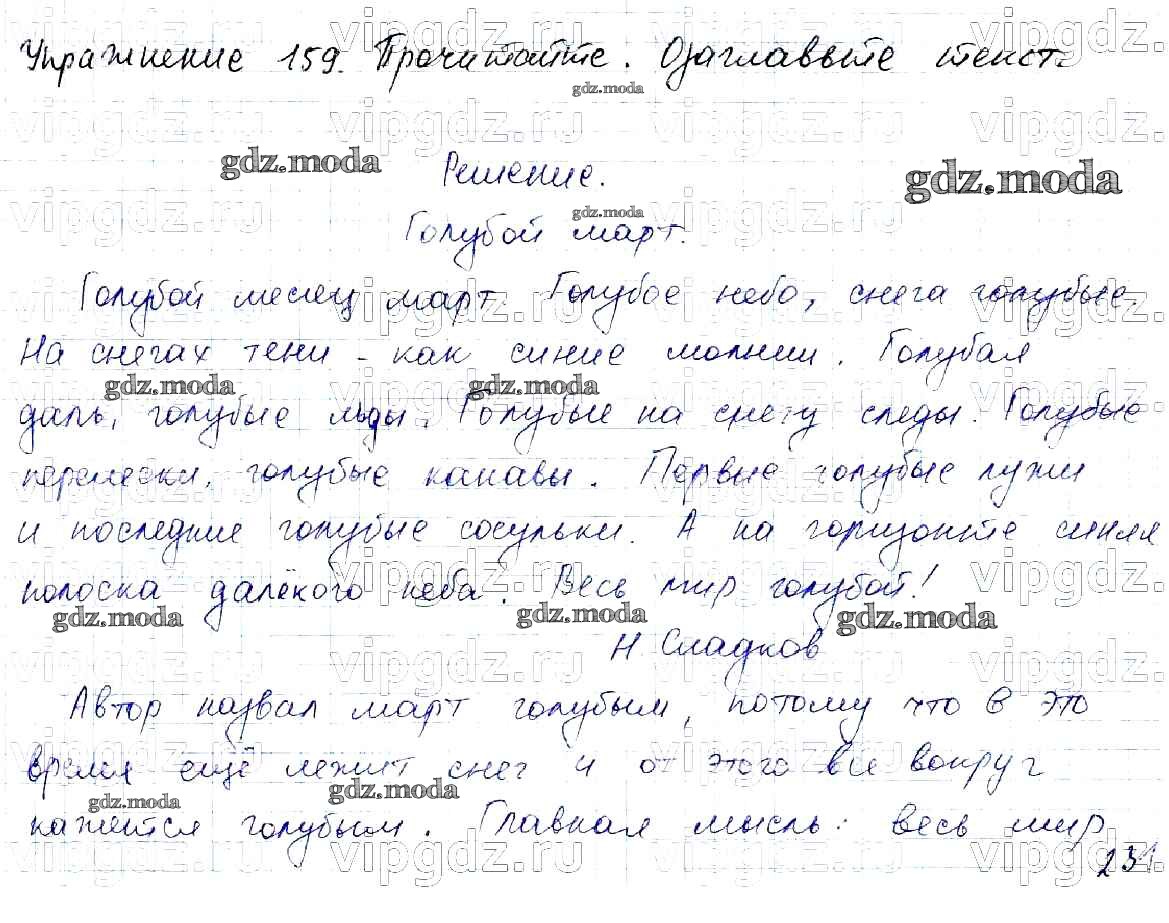 Упражнение 159. Прочитайте. Озаглавьте текст.
Решение.
Голубой март.
Голубой месяц март. Голубое небо, снега голубые.
На снегах тени - как синие молнии. Голубая
даль, голубые льды. Голубые на снегу следы. Голубые
перелески, голубые канавы. Первые голубые лужи
и последние голубые сосульки. А на горизонте синяя
полоска далёкого неба. Весь мир голубой!
Н Сладков
Автор назвал март голубым, потому что в это
время ещё лежит снег и от этого все вокруг
кажется голубым. Главная мысль: весь мир
231.
gdz.moda
vipgdz.ru